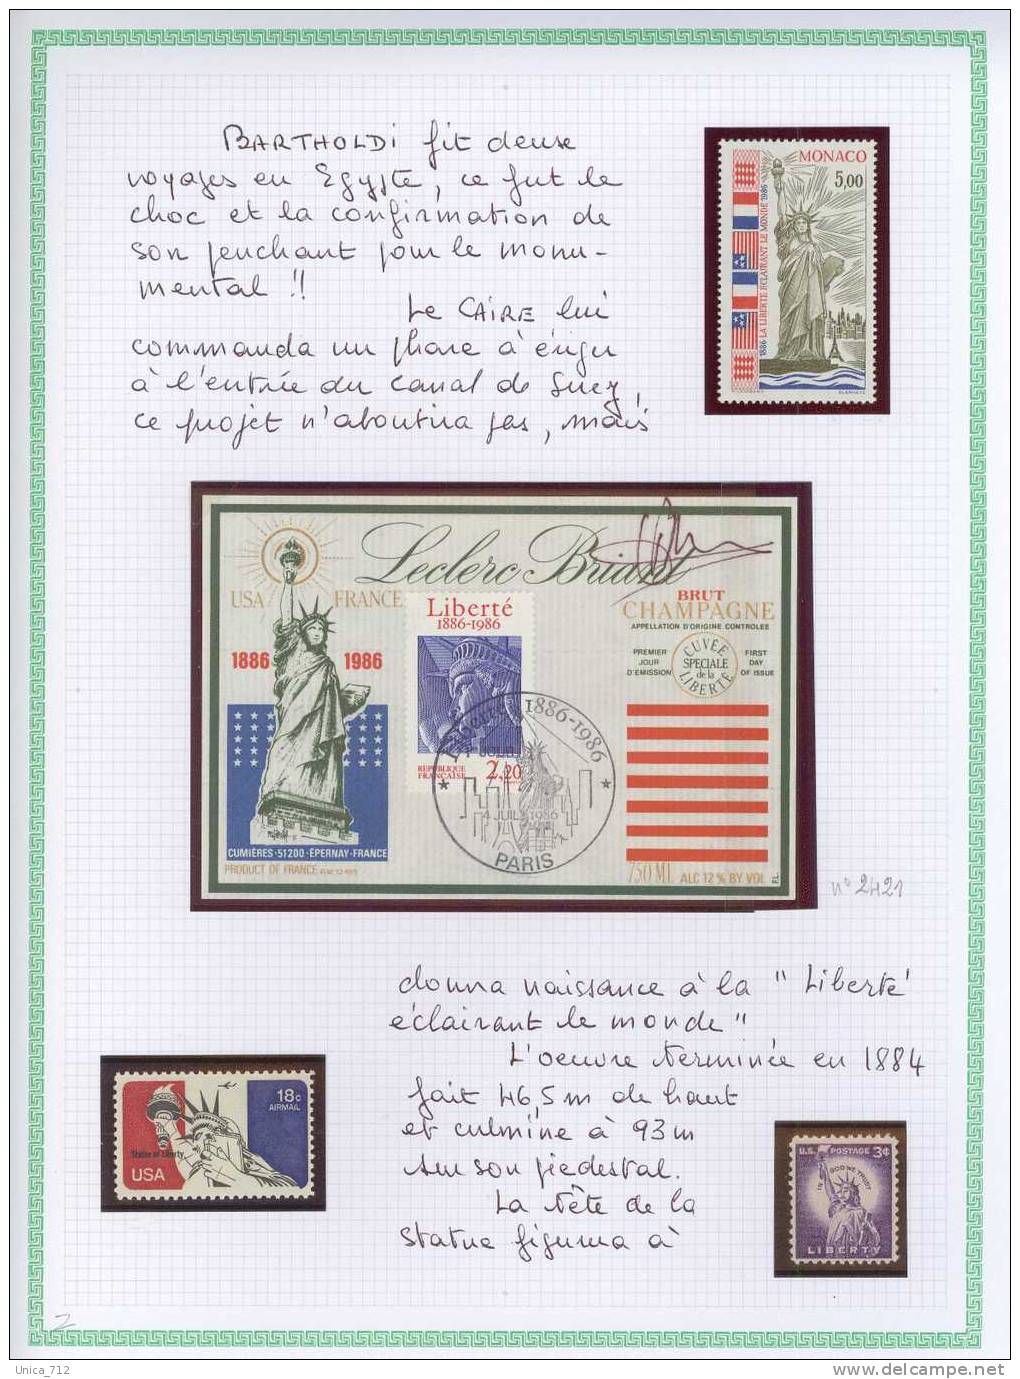 BARTHOLDI fit deuse
voyages en Egypte, ce fut le
choc et la confirmation de
son penchant pour le monu-
mental !!
Le CAIRE lui
commanda un phare à ériger
à l'entrée du canal de Suez,
ce projet n'aboutira pas, mais
MONACO
5,00
1886 LA LIBERTÉ ÉCLAIRANT LE MONDE 1986
Leclerc Briant
USA FRANCE
1886 1986
Liberté
1886-1986
BRUT
CHAMPAGNE
APPELLATION D'ORIGINE CONTROLEE
PREMIER
JOUR
D'EMISSION
CUVÉE
SPECIALE
de la
LIBERTÉ
FIRST
DAY
OF ISSUE
REPUBLIQUE
FRANÇAISE
2,20
Liberté 1886-1986
4 JUIL 1986
PARIS
CUMIÈRES-51200-ÉPERNAY-FRANCE
PRODUCT OF FRANCE
750 ML ALC 12 % BY VOL
F.L.
n° 2421
donna naissance à la "Liberté
éclairant le monde"
L'oeuvre terminée en 1884
fait 46,5 m de haut
et culmine à 93 m
sur son piedestal.
La tête de la
statue figura à
18c
AIRMAIL
Statue of Liberty
USA
U.S. POSTAGE 3¢
IN GOD WE TRUST
LIBERTY
Z
Unica_712
www.delcampe.net